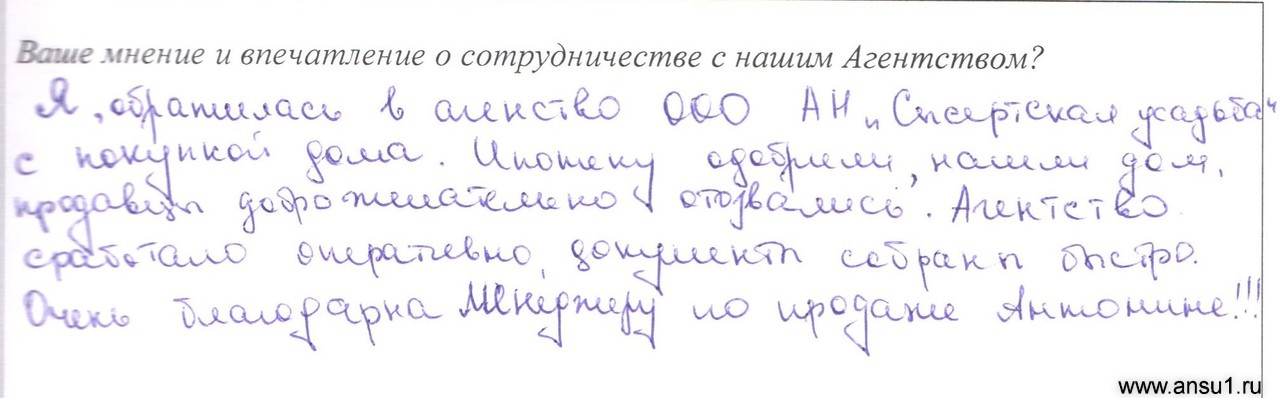 Ваше мнение и впечатление о сотрудничестве с нашим Агентством?
Я, обратилась в агенство ООО АН "Сысертская усадьба"
с покупкой дома. Ипотеку одобрили, нашли дом,
продавцы доброжелательно отозвались. Агентство
сработало оперативно, документы собраны быстро.
Очень благодарна менеджеру по продаже Антонине!!!
www.ansu1.ru